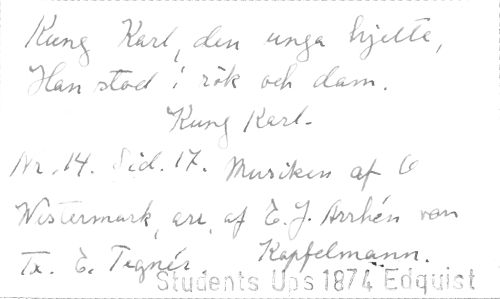 Kung Karl, den unga hjelte,
Han stod i rök och dam.
Kung Karl.
Nr. 14. Sid. 17. Musiken af O
Westermark, arr. af E. J. Arrhén von
Tx. E. Tegnér Kapfelmann.
Students Ups 1874 Edquist